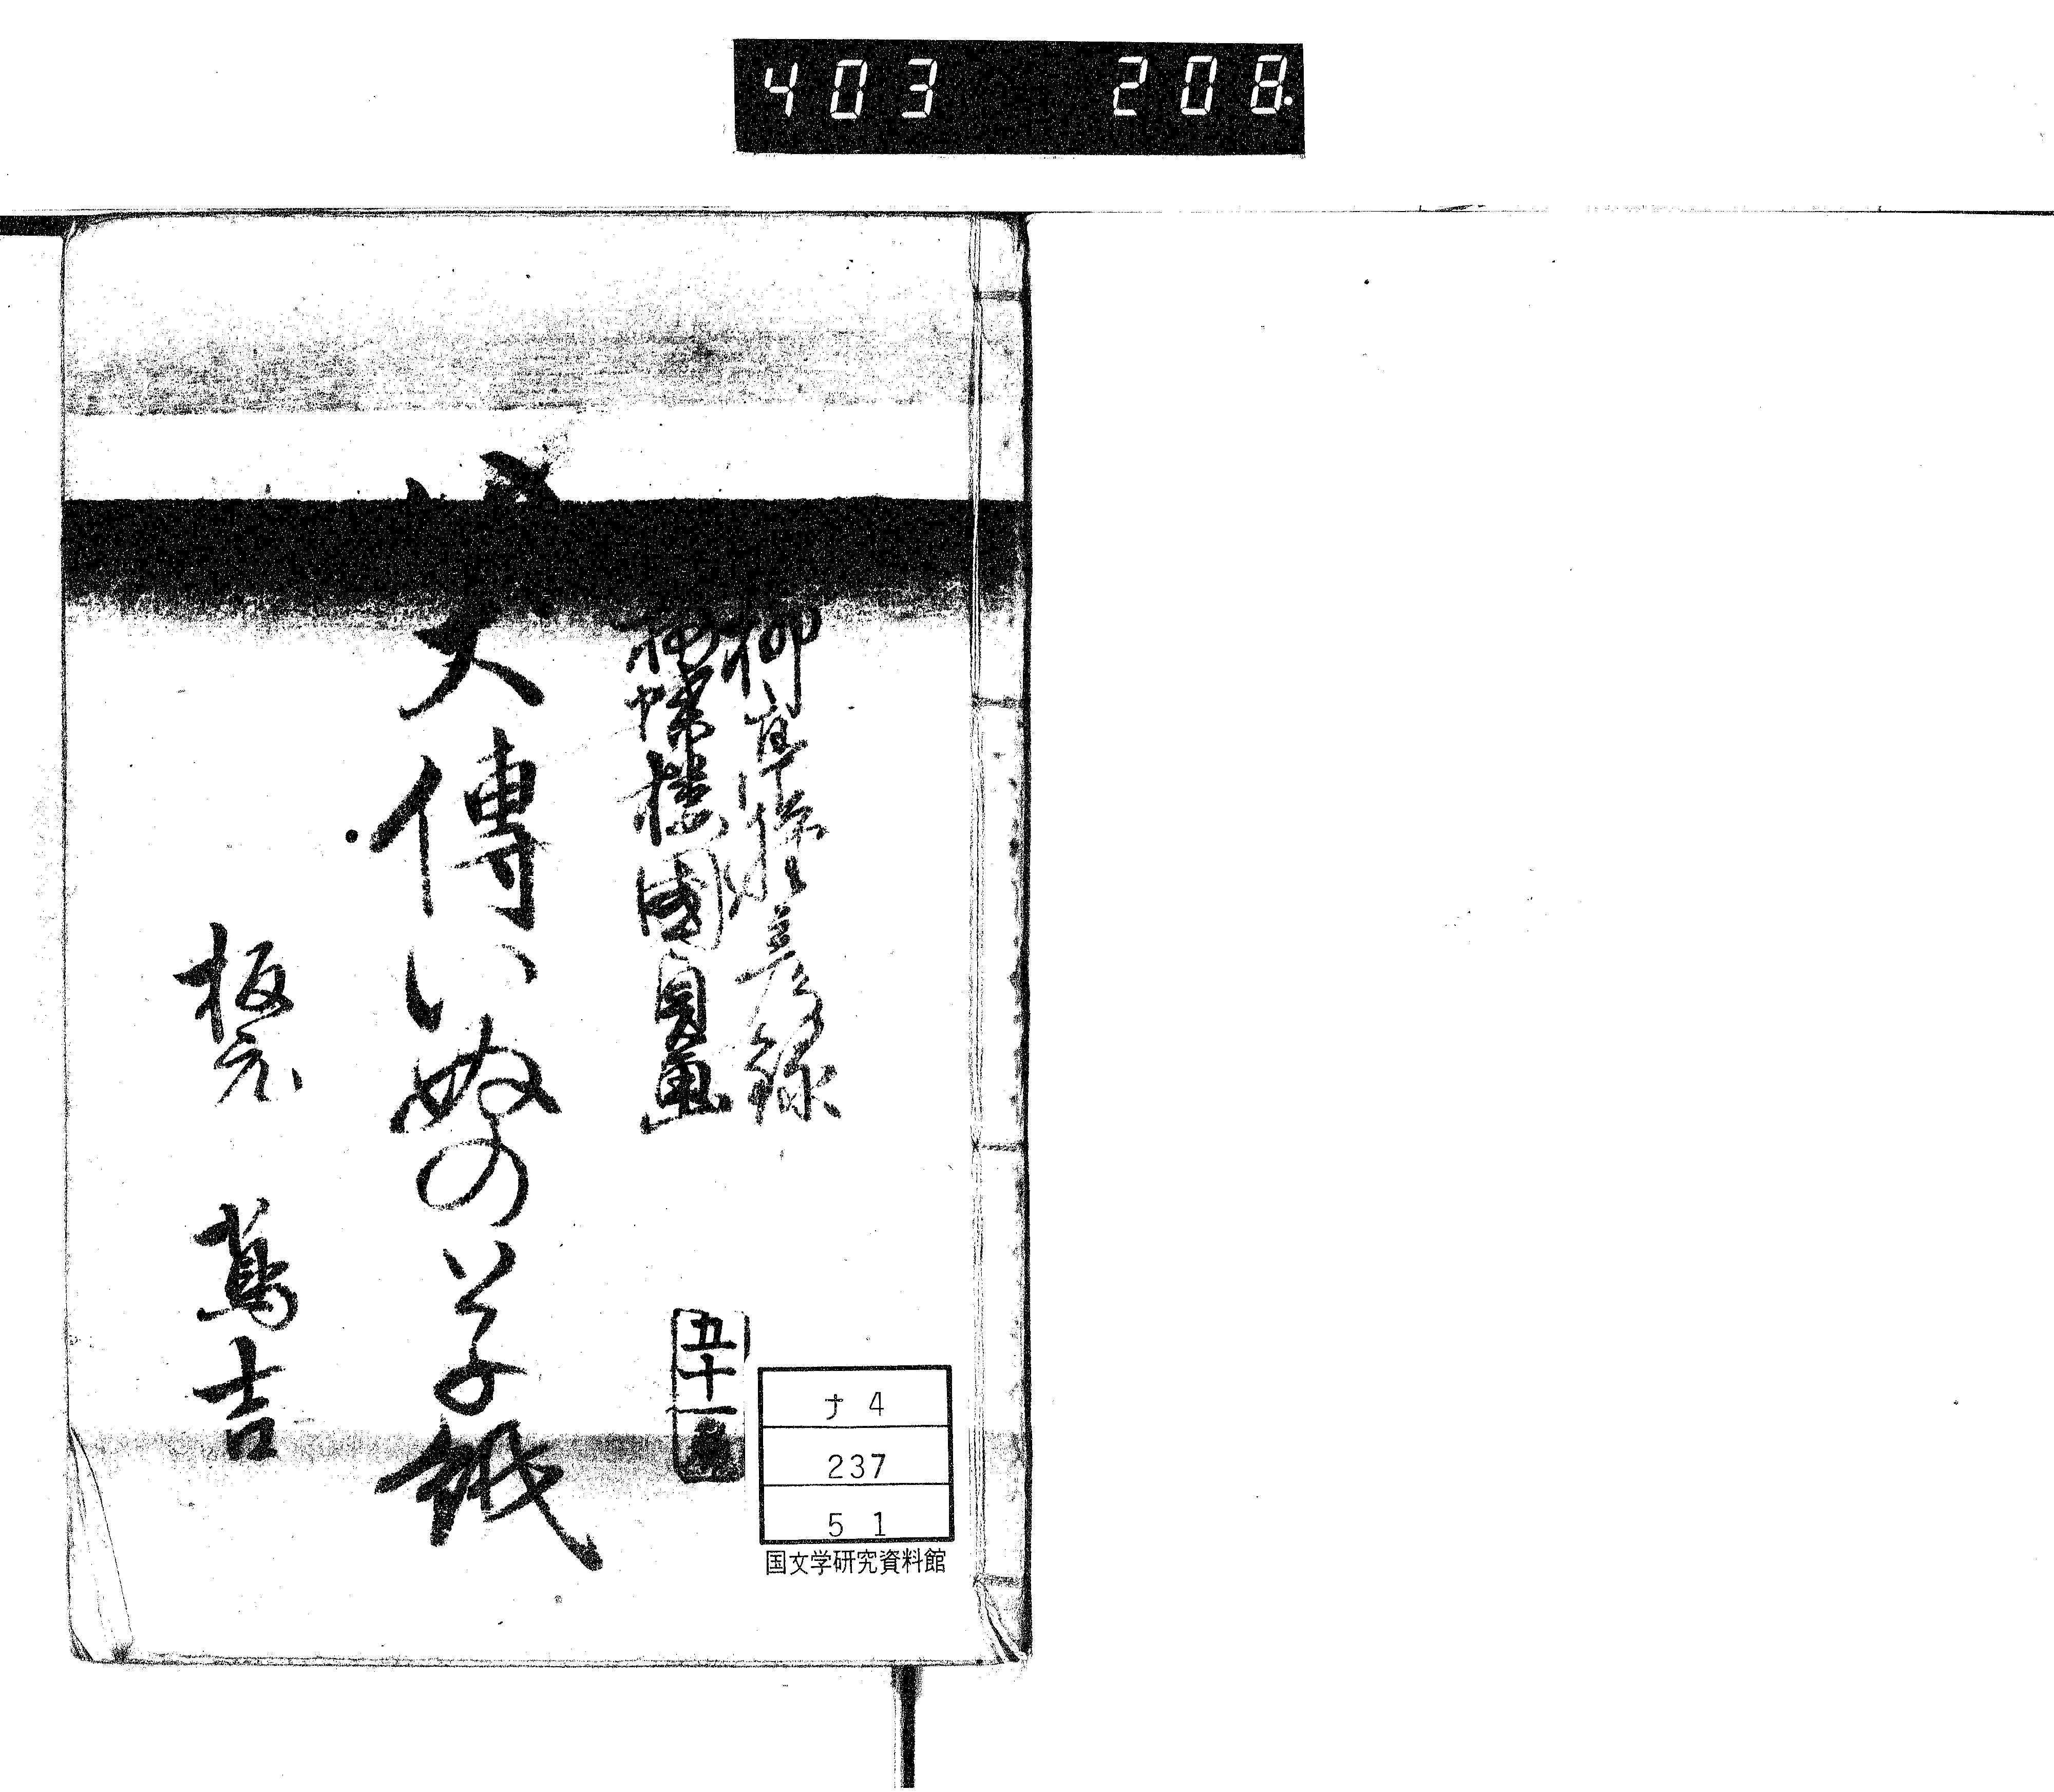 403 208.
柳亭種彦録
梅蝶樓國貞画
犬傳いぬの草紙
板元 蔦吉
五十一
ナ 4
237
5 1
国文学研究資料館